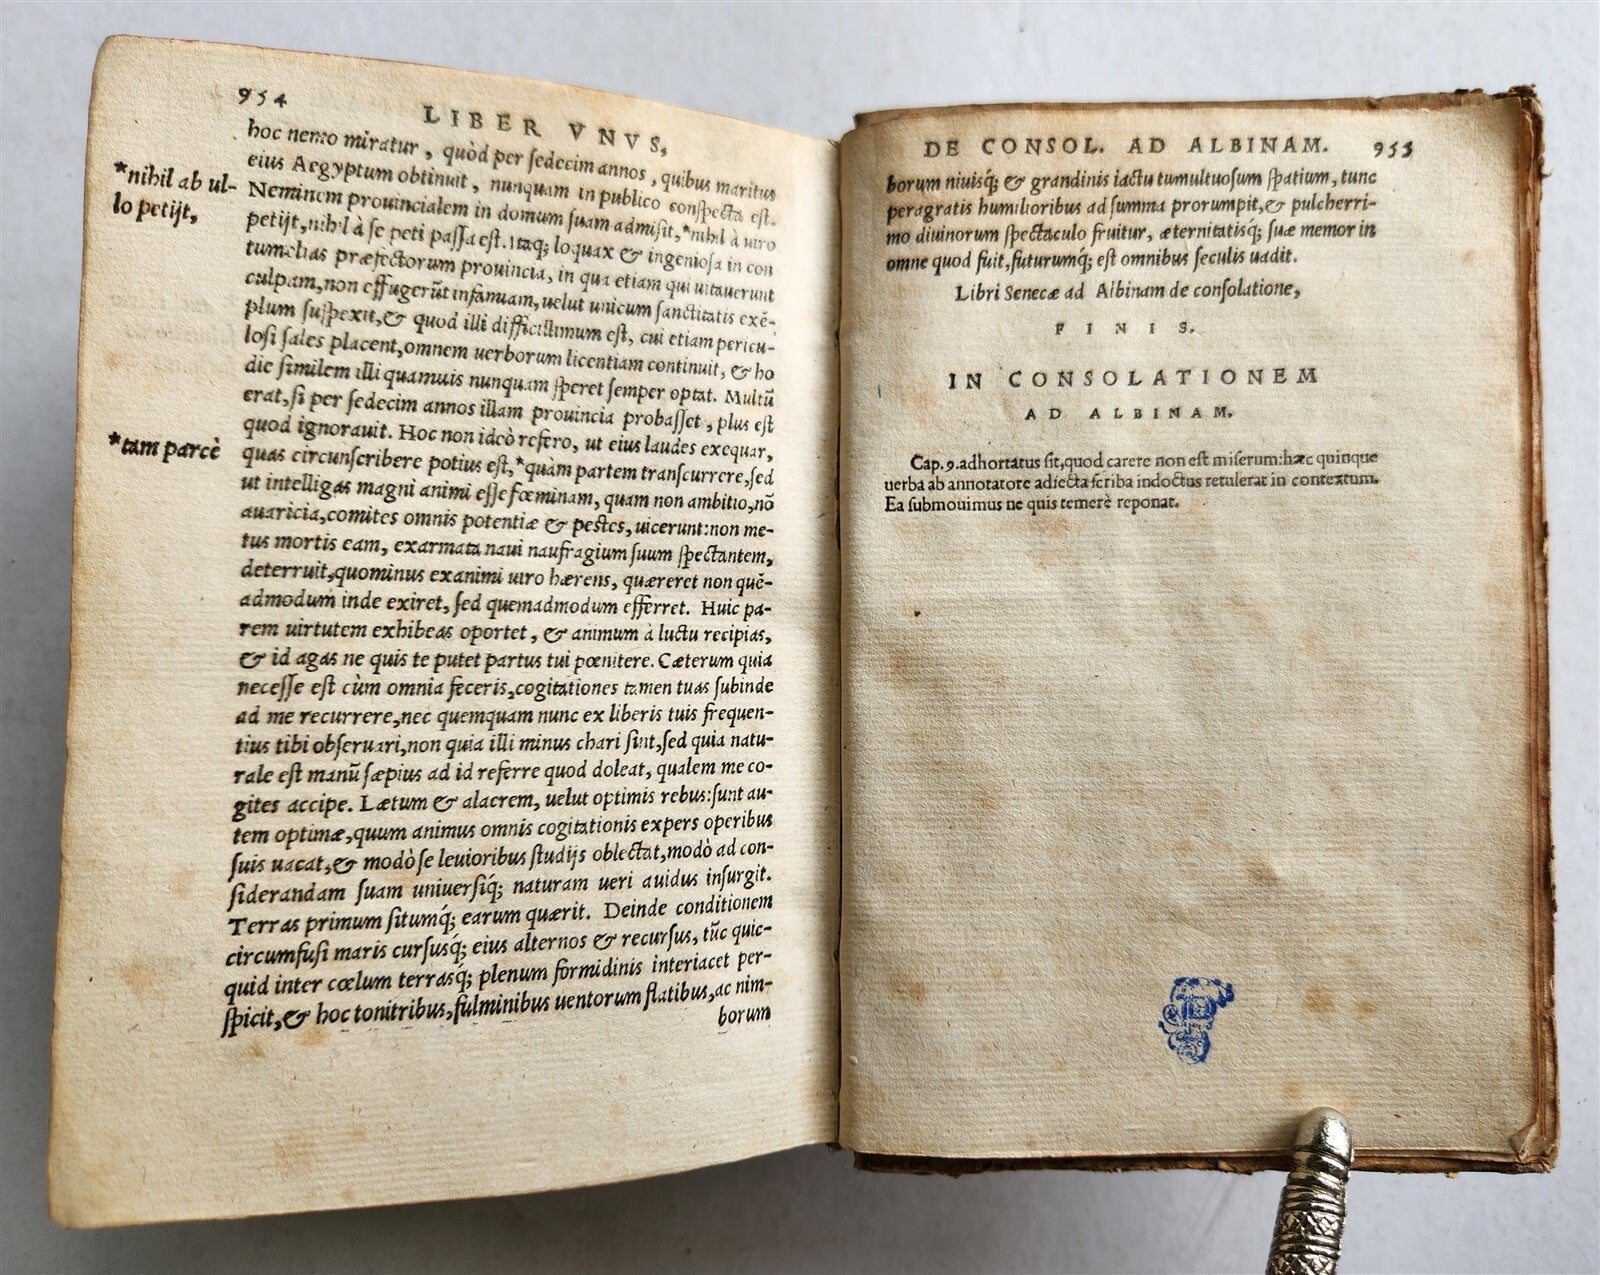 954
LIBER VNVS,
hoc nemo miratur, quòd per ſedecim annos, quibus maritus
eius Aegyptum obtinuit, nunquam in publico conſpecta eſt.
*nihil ab ul-
lo petijt,
Neminem prouincialem in domum ſuam admiſit, *nihil à uiro
petijt, nihil à ſe peti paſſa eſt. Itaq; loquax & ingenioſa in con
tumelias præfectorum prouincia, in qua etiam qui uitauerunt
culpam, non effugerūt infamiam, uelut unicum ſanctitatis exē-
plum ſuſpexit, & quod illi difficillimum eſt, cui etiam pericu-
loſi ſales placent, omnem uerborum licentiam continuit, & ho
die ſimilem illi quamuis nunquam ſperet ſemper optat. Multū
erat, ſi per ſedecim annos illam prouincia probaſſet, plus eſt
quod ignorauit. Hoc non ideò refero, ut eius laudes exequar,
*tam parcè
quas circunſcribere potius eſt, *quàm partem tranſcurrere, ſed
ut intelligas magni animi eſſe fœminam, quam non ambitio, nō
auaricia, comites omnis potentiæ & peſtes, uicerunt: non me-
tus mortis eam, exarmata naui naufragium ſuum ſpectantem,
deterruit, quominus exanimi uiro hærens, quæreret non quē-
admodum inde exiret, ſed quemadmodum efferret. Huic pa-
rem uirtutem exhibeas oportet, & animum à luctu recipias,
& id agas ne quis te putet partus tui pœnitere. Cæterum quia
neceſſe eſt cùm omnia feceris, cogitationes tamen tuas ſubinde
ad me recurrere, nec quemquam nunc ex liberis tuis frequen-
tius tibi obſeruari, non quia illi minus chari ſint, ſed quia natu-
rale eſt manū ſæpius ad id referre quod doleat, qualem me co-
gites accipe. Lætum & alacrem, uelut optimis rebus: ſunt au-
tem optimæ, quum animus omnis cogitationis expers operibus
ſuis uacat, & modò ſe leuioribus ſtudijs oblectat, modò ad con-
ſiderandam ſuam uniuerſiq́; naturam ueri auidus inſurgit.
Terras primum ſitumq́; earum quærit. Deinde conditionem
circumfuſi maris curſusq́; eius alternos & recurſus, tūc quic-
quid inter cœlum terrasq́; plenum formidinis interiacet per-
ſpicit, & hoc tonitribus, fulminibus uentorum flatibus, ac nim-
borum
DE CONSOL. AD ALBINAM. 955
borum niuisq́; & grandinis iactu tumultuoſum ſpatium, tunc
peragratis humilioribus ad ſumma prorumpit, & pulcherri-
mo diuinorum ſpectaculo fruitur, æternitatisq́; ſuæ memor in
omne quod fuit, futurumq́; eſt omnibus ſeculis uadit.
Libri Senecæ ad Albinam de conſolatione,
FINIS.
IN CONSOLATIONEM
AD ALBINAM.
Cap. 9. adhortatus ſit, quod carere non eſt miſerum: hæc quinque
uerba ab annotatore adiecta ſcriba indoctus retulerat in contextum.
Ea ſubmouimus ne quis temerè reponat.